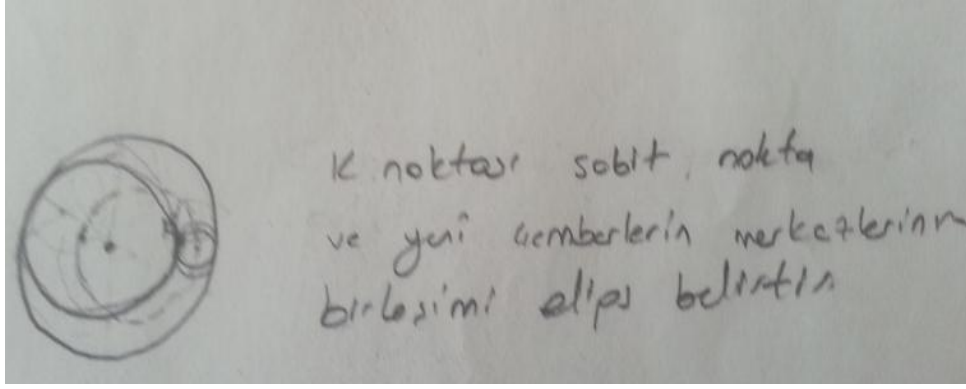 K noktası sabit nokta
ve yeni çemberlerin merkezlerinin
birleşimi elips belirtir